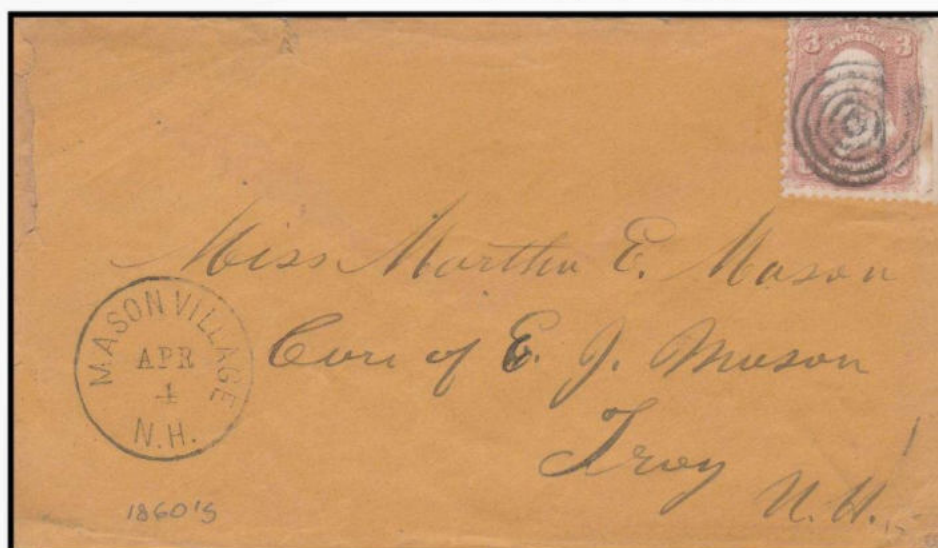 3 3
Miss Martha E. Mason
Care of E. J. Mason
Troy
N. H.
MASON VILLAGE
APR
4
N.H.
1860's